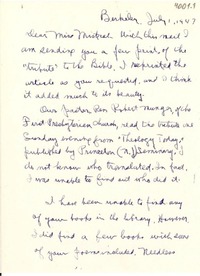 Berkeley, July 1, 1947
Dear Miss Mistral: With this mail I
am sending you a few prints of the
"tribute" to the Bible. I reprinted the
article as you requested, and I think
it added much to its beauty.
Our Pastor Rev Robert Munger of the
First Presbyterian Church, read the tribute one
Sunday evening from "Theology Today"
published by Princeton (N.J.) Seminary. I
do not know who translated. In fact,
I was unable to find out who did it.
I have been unable to find any
of your books in the library. However
I did find a few books with some
of your poems included. Needless